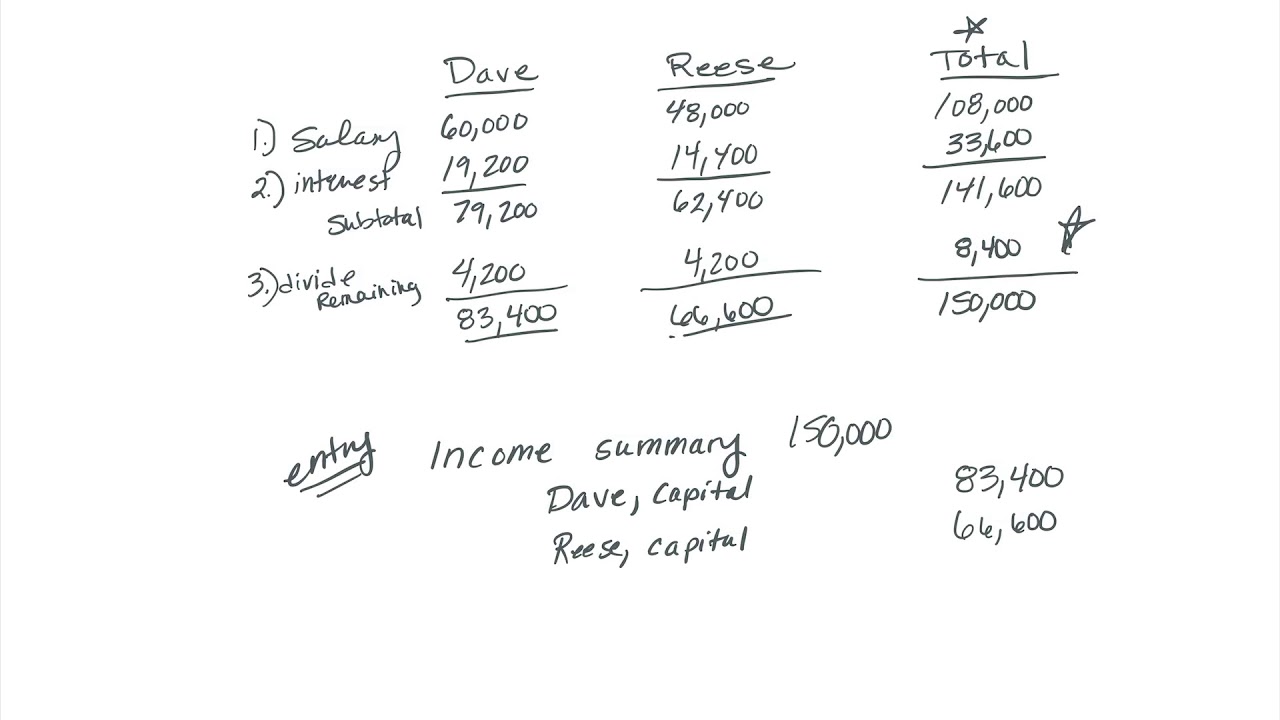 Dave Reese Total
1.) Salary 60,000 48,000 108,000
2.) interest 19,200 14,400 33,600
Subtotal 79,200 62,400 141,600
3.) divide Remaining 4,200 4,200 8,400
83,400 66,600 150,000
entry Income summary 150,000
Dave, Capital 83,400
Reese, capital 66,600